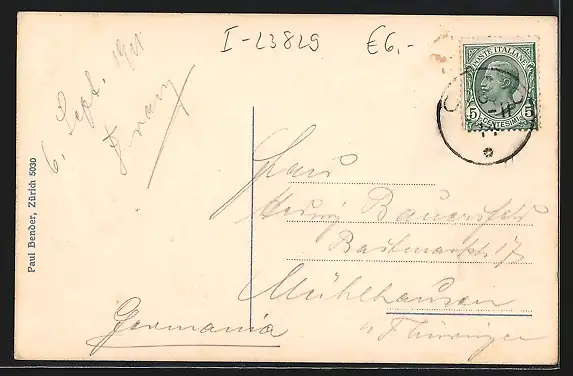 I-23829 €6,-
POSTE ITALIANE
5 5
CENTESIMI
6. Sept. 1911
Franz
Paul Bender, Zürich 5030
Frau
Hedwig Bauersfeld
17
Mühlhausen
Thüringen
Germania